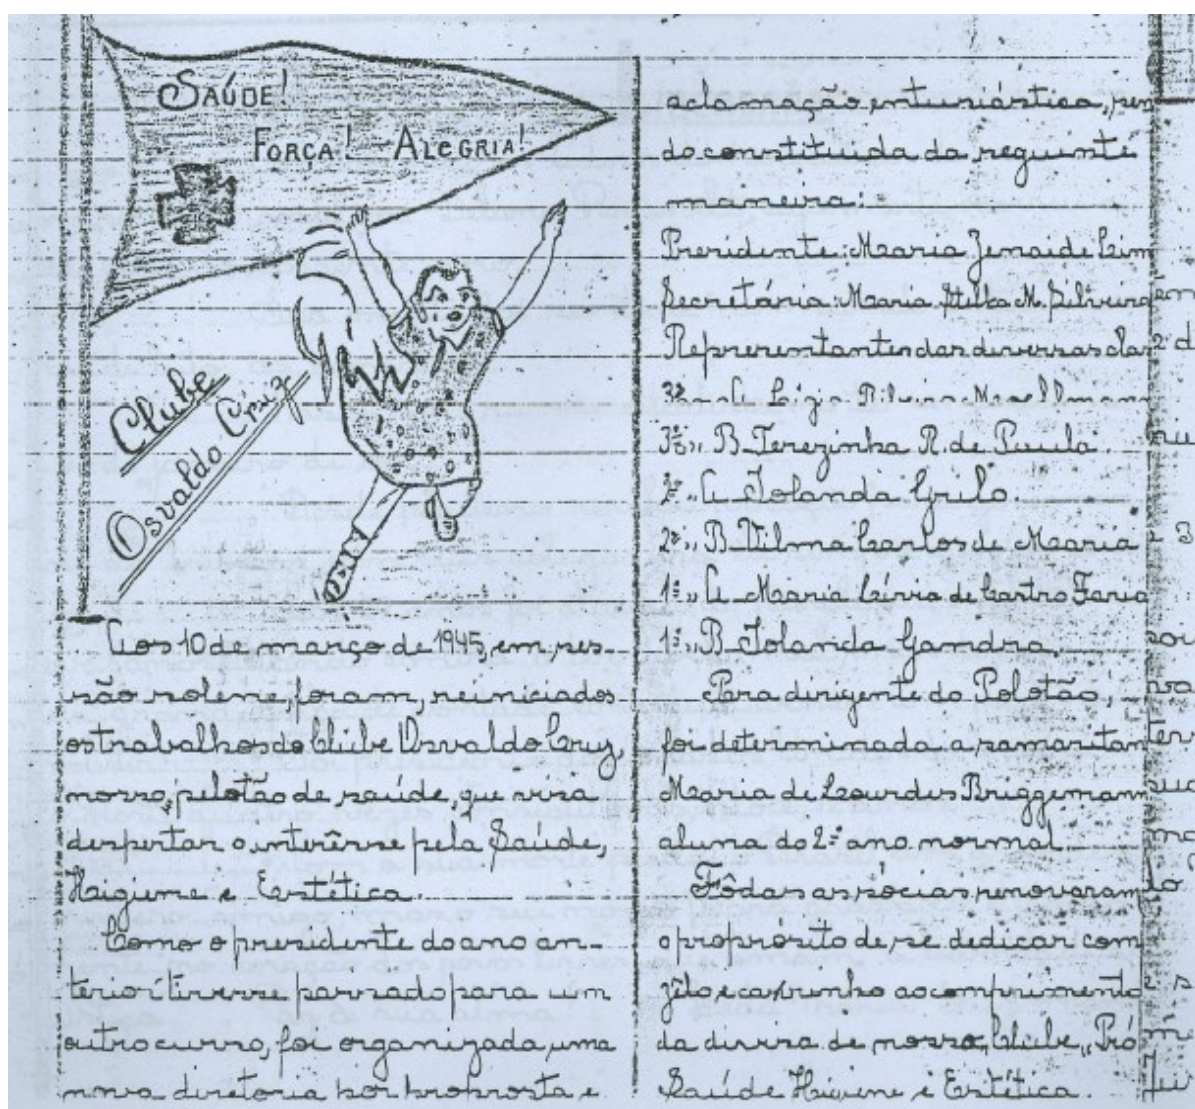 SAÚDE!
FORÇA! ALEGRIA!
Clube
Osvaldo Cruz
Aos 10 de março de 1945, em ses-
são solene, foram, reiniciados
os trabalhos do Clube Osvaldo Cruz,
nosso, pelotão de saúde, que visa
despertar o interêsse pela Saúde,
Higiene e Estética.
Como o presidente do ano an-
terior tivesse passado para um
outro curso, foi organizada, uma
nova diretoria por proposta e
aclamação entusiástica, sen
do constituida da seguinte
maneira:
Presidente: Maria Zenaide Lim
Secretária: Maria Stella M. Silveira
Representantes das diversas clas
3º A Lígia Ribeiro
3º " B Terezinha R. de Paula.
2º " A Iolanda Grilo.
2º " B Vilma Carlos de Maria
1º " A Maria Lívia de Castro Faria
1º " B Iolanda Gandra.
Para dirigente do Pelotão,
foi determinada a samaritan
Maria de Lourdes Briggemann
aluna do 2º ano normal.
Tôdas as sócias, renovaram
o propósito de, se dedicar com
zêlo, e carinho ao comprimento
da divisa de nosso, Clube, "Pró
Saúde Higiene e Estética.